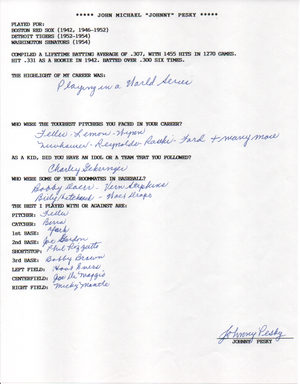 ***** JOHN MICHAEL "JOHNNY" PESKY *****
PLAYED FOR:
BOSTON RED SOX (1942, 1946-1952)
DETROIT TIGERS (1952-1954)
WASHINGTON SENATORS (1954)
COMPILED A LIFETIME BATTING AVERAGE OF .307, WITH 1455 HITS IN 1270 GAMES.
HIT .331 AS A ROOKIE IN 1942. BATTED OVER .300 SIX TIMES.
THE HIGHLIGHT OF MY CAREER WAS:
Playing in a World Series
WHO WERE THE TOUGHEST PITCHERS YOU FACED IN YOUR CAREER?
Feller - Lemon - Wynn
Newhouser - Reynolds - Raschi - Ford + many more
AS A KID, DID YOU HAVE AN IDOL OR A TEAM THAT YOU FOLLOWED?
Charley Gehringer
WHO WERE SOME OF YOUR ROOMMATES IN BASEBALL?
Bobby Doerr - Vern Stephens
Billy Hitchcock - Walt Dropo
THE BEST I PLAYED WITH OR AGAINST ARE:
PITCHER: Feller
CATCHER: Berra
1st BASE: York
2nd BASE: Joe Gordon
SHORTSTOP: Phil Rizzuto
3rd BASE: Bobby Brown
LEFT FIELD:
CENTERFIELD: Joe Di Maggio
RIGHT FIELD: Micky Mantle
Johnny Pesky
JOHNNY PESKY